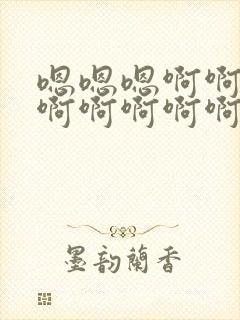 嗯嗯嗯啊啊
啊啊啊啊啊
墨韵蘭香